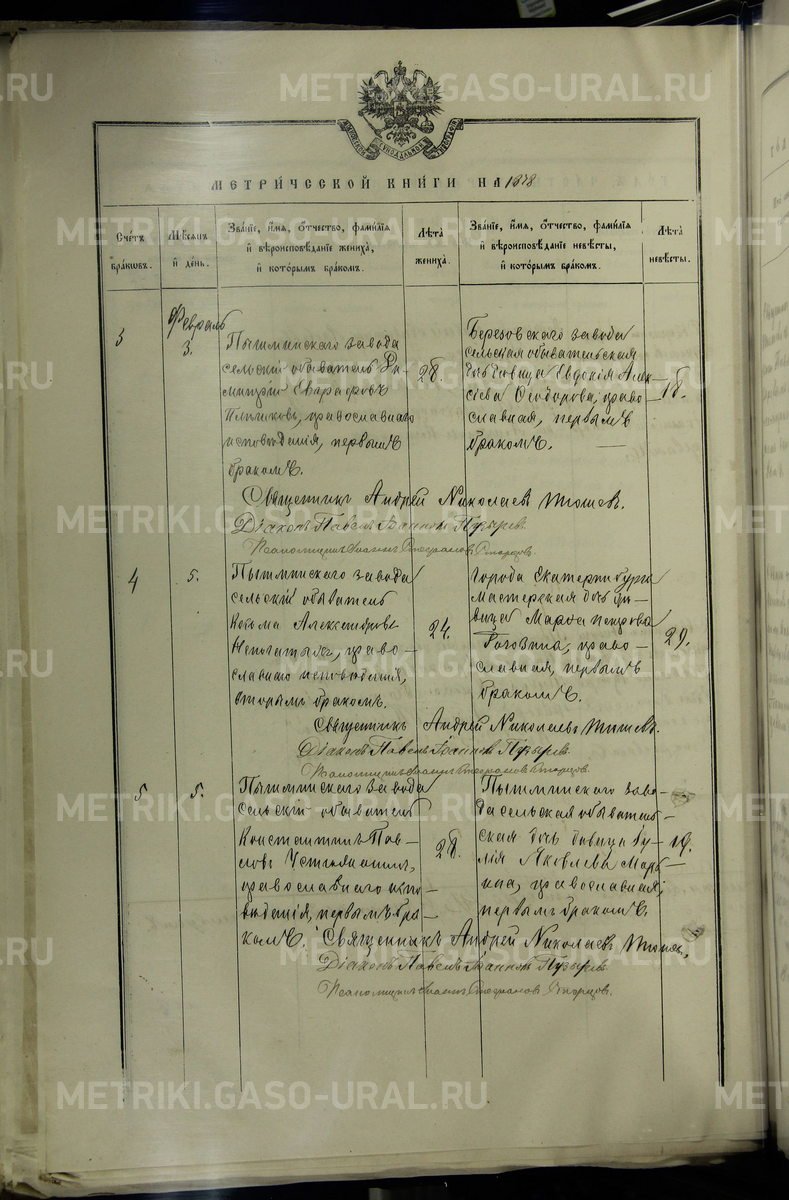 МЕТРИЧЕСКОЙ КНИГИ НА 1878
Счетъ браковъ.
Мѣсяцъ и день.
Званіе, имя, отчество, фамилія и вѣроисповѣданіе жениха, и которымъ бракомъ.
Лѣта жениха.
Званіе, имя, отчество, фамилія и вѣроисповѣданіе невѣсты, и которымъ бракомъ.
Лѣта невѣсты.
3
Февраль
3.
Пышминскаго завода
сельскій обыватель Ди-
митрій
православнаго
исповѣданія, первымъ
бракомъ.
28.
Березовскаго завода
сельская обывательская
дочь дѣвица Евдокія Алек-
сѣева Ѳеодорова, право-
славная, первымъ
бракомъ.
18.
Священникъ Андрей Николаевъ Тюшевъ.
Діаконъ Павелъ Іоанновъ Пузыревъ.
Псаломщикъ Іоаннъ Стефановъ Старцовъ.
4
5.
Пышминскаго завода
сельскій обыватель
Козьма Александровъ
право-
славнаго исповѣданія,
вторымъ бракомъ.
24.
Города Екатеринбурга
мастерская дочь дѣ-
вица Марѳа Петрова
Рогозина, право-
славная, первымъ
бракомъ.
29.
Священникъ Андрей Николаевъ Тюшевъ.
Діаконъ Павелъ Іоанновъ Пузыревъ.
Псаломщикъ Іоаннъ Стефановъ Старцовъ.
5
5.
Пышминскаго завода
сельскій обыватель
Константинъ Пав-
ловъ Устьянцинъ,
православнаго испо-
вѣданія, первымъ бра-
комъ.
28.
Пышминскаго заво-
да сельская обыватель-
ская дочь дѣвица Іу-
лія Яковлева Марь-
ина, православная,
первымъ бракомъ.
19.
Священникъ Андрей Николаевъ Тюшевъ.
Діаконъ Павелъ Іоанновъ Пузыревъ.
Псаломщикъ Іоаннъ Стефановъ Старцовъ.
METRIKI.GASO-URAL.RU
METRIKI.GASO-URAL.RU
METRIKI.GASO-URAL.RU
METRIKI.GASO-URAL.RU
METRIKI.GASO-URAL.RU
METRIKI.GASO-URAL.RU
METRIKI.GASO-URAL.RU
METRIKI.GASO-URAL.RU